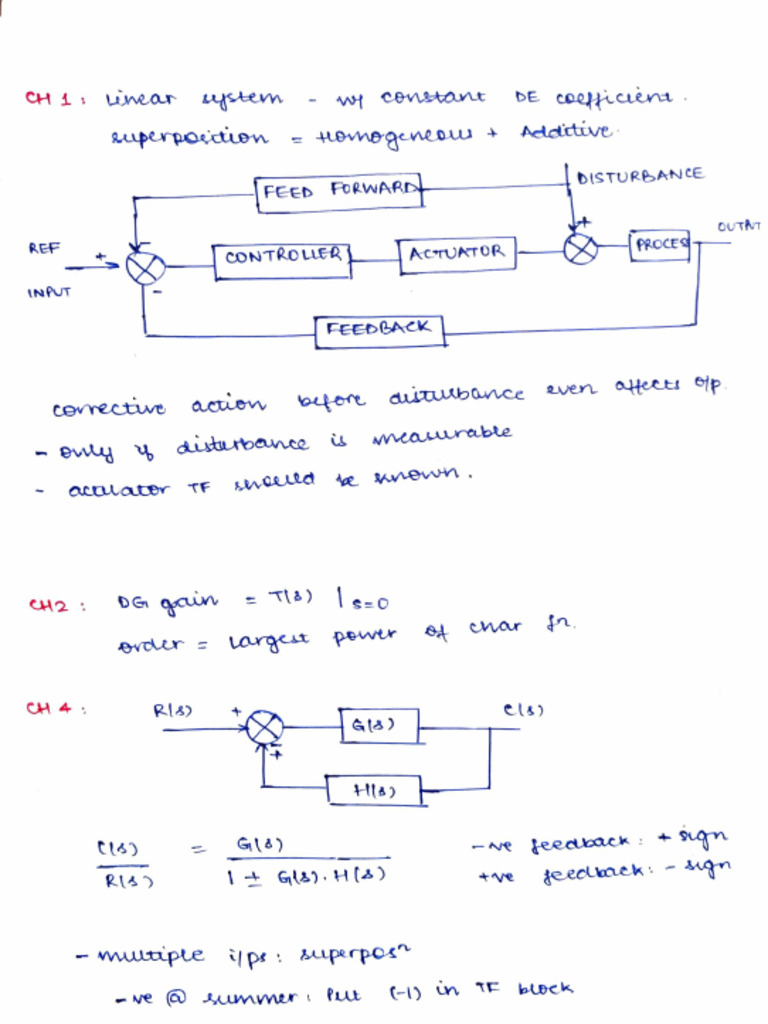 CH 1 : Linear system - w/ constant DE coefficient.
superposition = Homogeneous + Additive.
FEED FORWARD
DISTURBANCE
- +
REF
INPUT
+
CONTROLLER
ACTUATOR
PROCESS
OUTPUT
-
FEEDBACK
corrective action before disturbance even affects o/p.
- only if disturbance is measurable
- actuator TF should be known.
CH2 : DG gain = T(s) |s=0
order = largest power of char fn.
CH 4 :
R(s) + G(s) C(s)
∓
H(s)
C(s)/R(s) = G(s)/1 ± G(s).H(s)
-ve feedback : + sign
+ve feedback : - sign
- multiple i/ps : superposn
-ve @ summer : Put (-1) in TF block